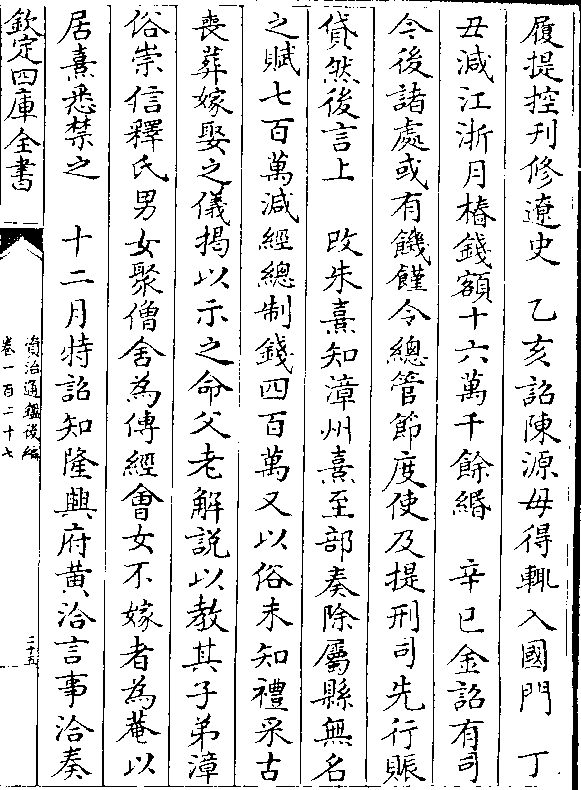 履提控刋修遼史　乙亥詔陳源毋得輒入國門　丁
丑減江浙月樁錢額十六萬千餘緡　辛巳金詔有司
今後諸處或有饑饉令總管節度使及提刑司先行賑
貸然後言上　改朱熹知漳州熹至部奏除屬縣無名
之賦七百萬減經總制錢四百萬又以俗未知禮采古
喪葬嫁娶之儀揭以示之命父老解説以教其子弟漳
俗崇信釋氏男女聚僧舍為傳經會女不嫁者為菴以
居熹悉禁之　十二月特詔知隆興府黄洽言事洽奏
欽定四庫全書
資治通鑑後編
卷一百二十七
二十五